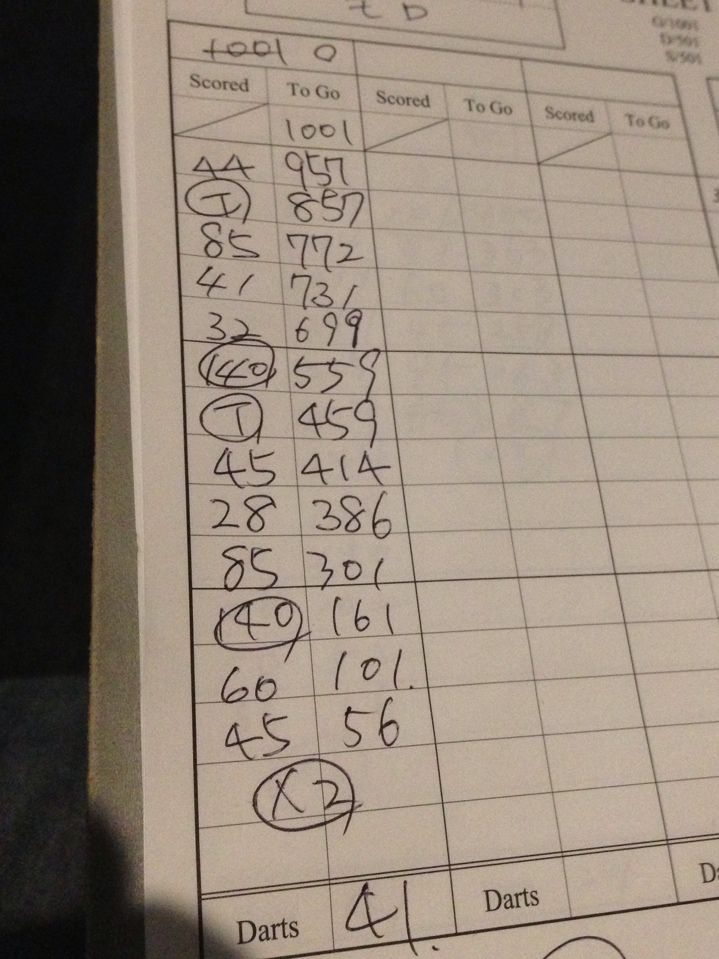 1001 0
Scored To Go Scored To Go Scored To Go
1001
44 957
T 857
85 772
41 731
32 699
140 559
T 459
45 414
28 386
85 301
140 161
60 101.
45 56
X2
Darts 41. Darts